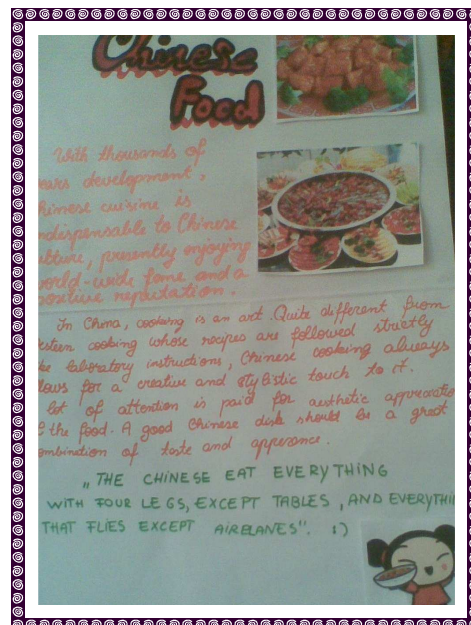 Chinese
Food
With thousands of
ears development,
hinese cuisine is
ndispensable to Chinese
ulture, presently enjoying
orld-wide fame and a
ositive reputation.
In China, cooking is an art. Quite different from
estern cooking whose recipes are followed strictly
ke laboratory instructions, Chinese cooking always
lows for a creative and stylistic touch to it.
lot of attention is paid for aesthetic appreciatio
f the food. A good Chinese dish should be a great
ombination of taste and apperance.
„THE CHINESE EAT EVERYTHING
WITH FOUR LEGS, EXCEPT TABLES, AND EVERYTHI
THAT FLIES EXCEPT AIRPLANES". :)